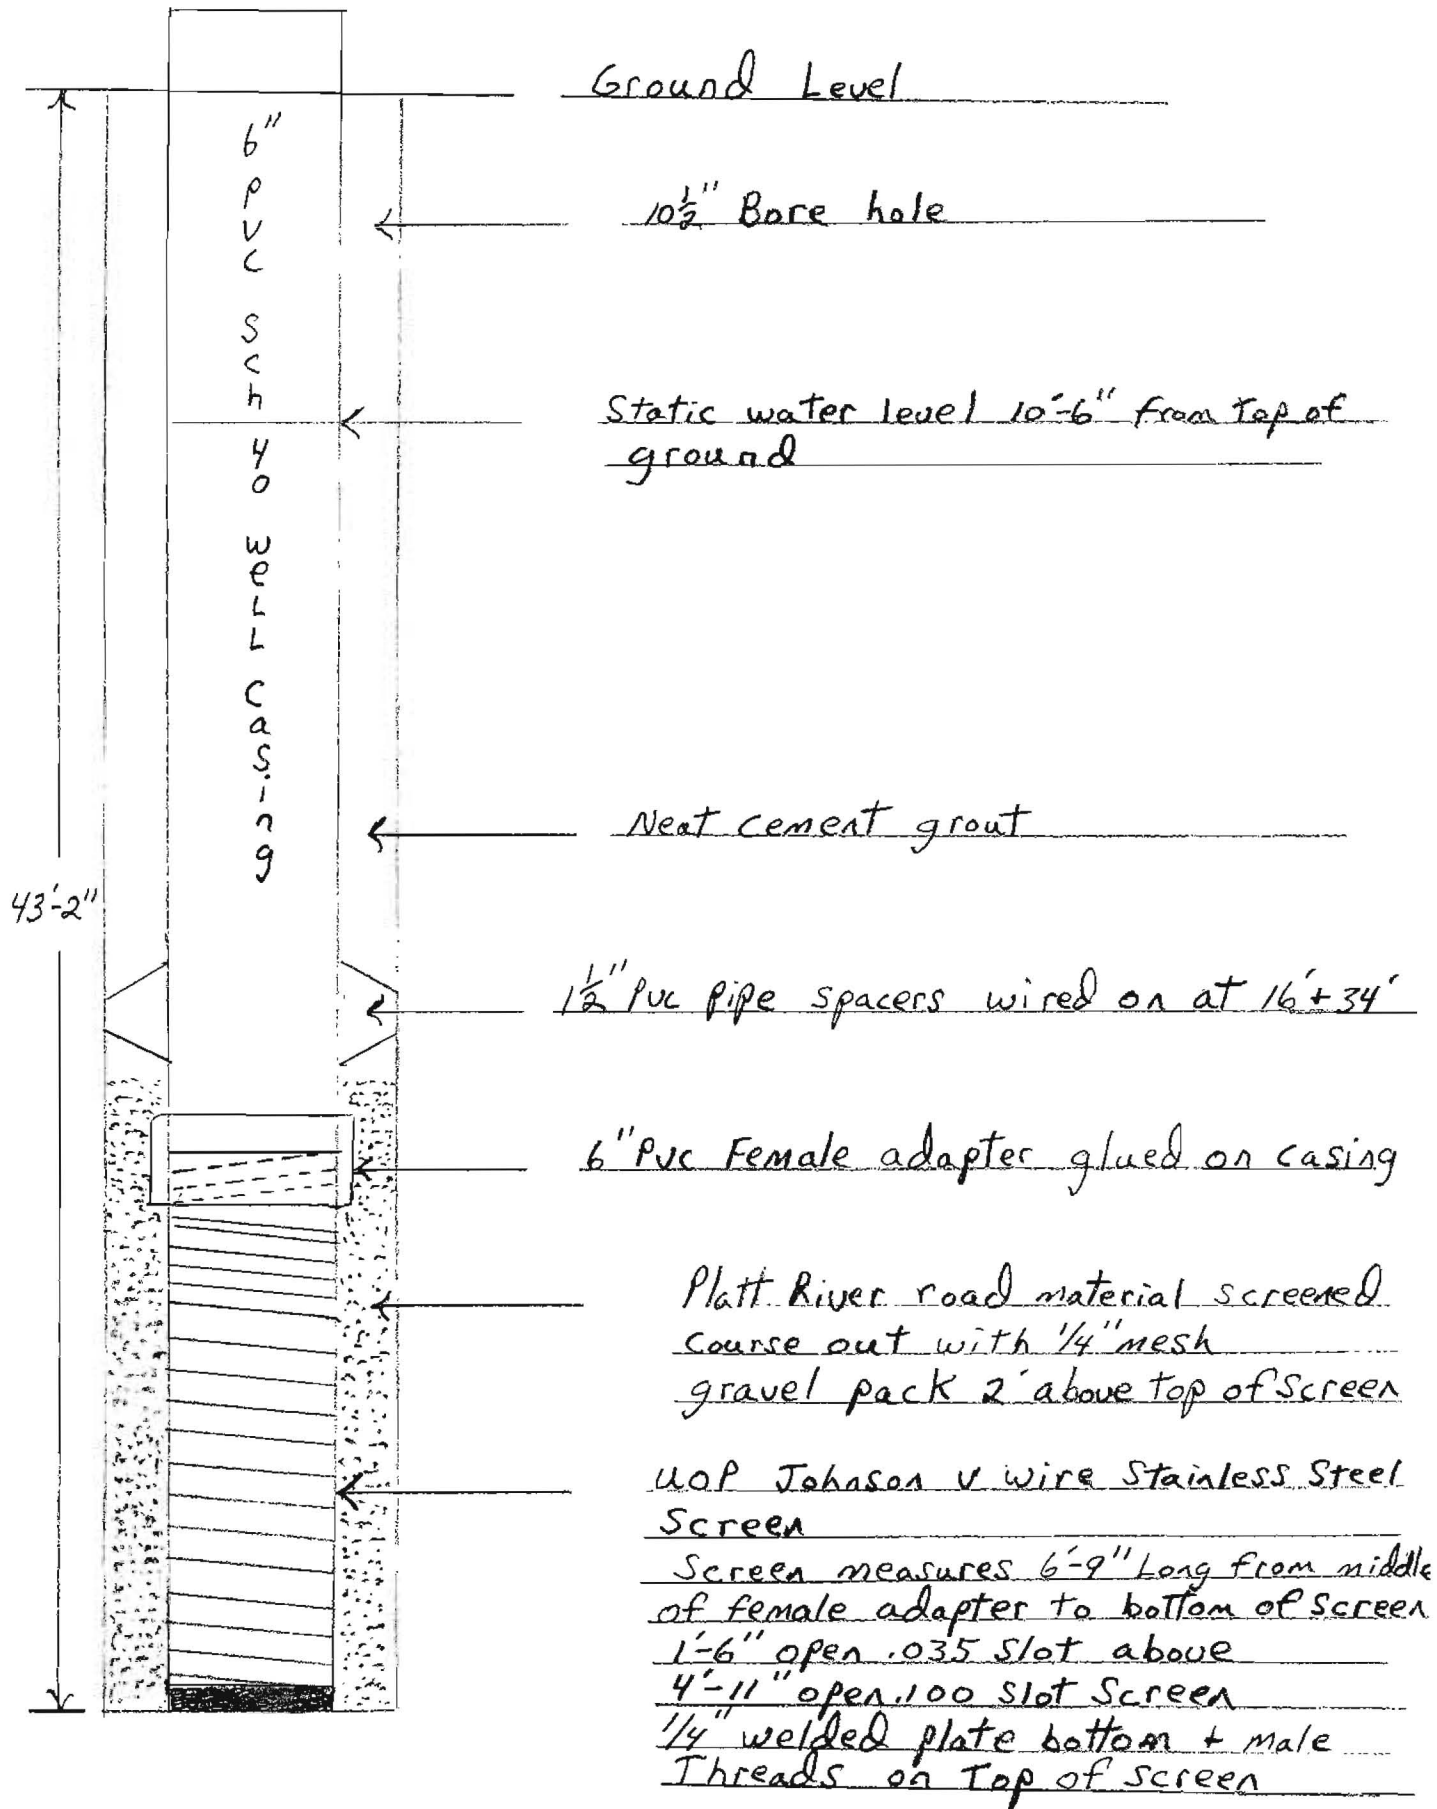 Ground Level
6" PVC Sch 40 weLL Casing
10½" Bore hole
Static water level 10'-6" from Top of
ground
Neat cement grout
43'-2"
1½" PVC Pipe spacers wired on at 16' + 34'
6" PVC Female adapter glued on casing
Platt River road material screened
Course out with 1/4" mesh
gravel pack 2' above top of Screen
UOP Johnson V wire Stainless Steel
Screen
Screen measures 6'-9" Long from middle
of female adapter to bottom of Screen
1'-6" open .035 Slot above
4'-11" open .100 Slot Screen
1/4" welded plate bottom + male
Threads on Top of screen